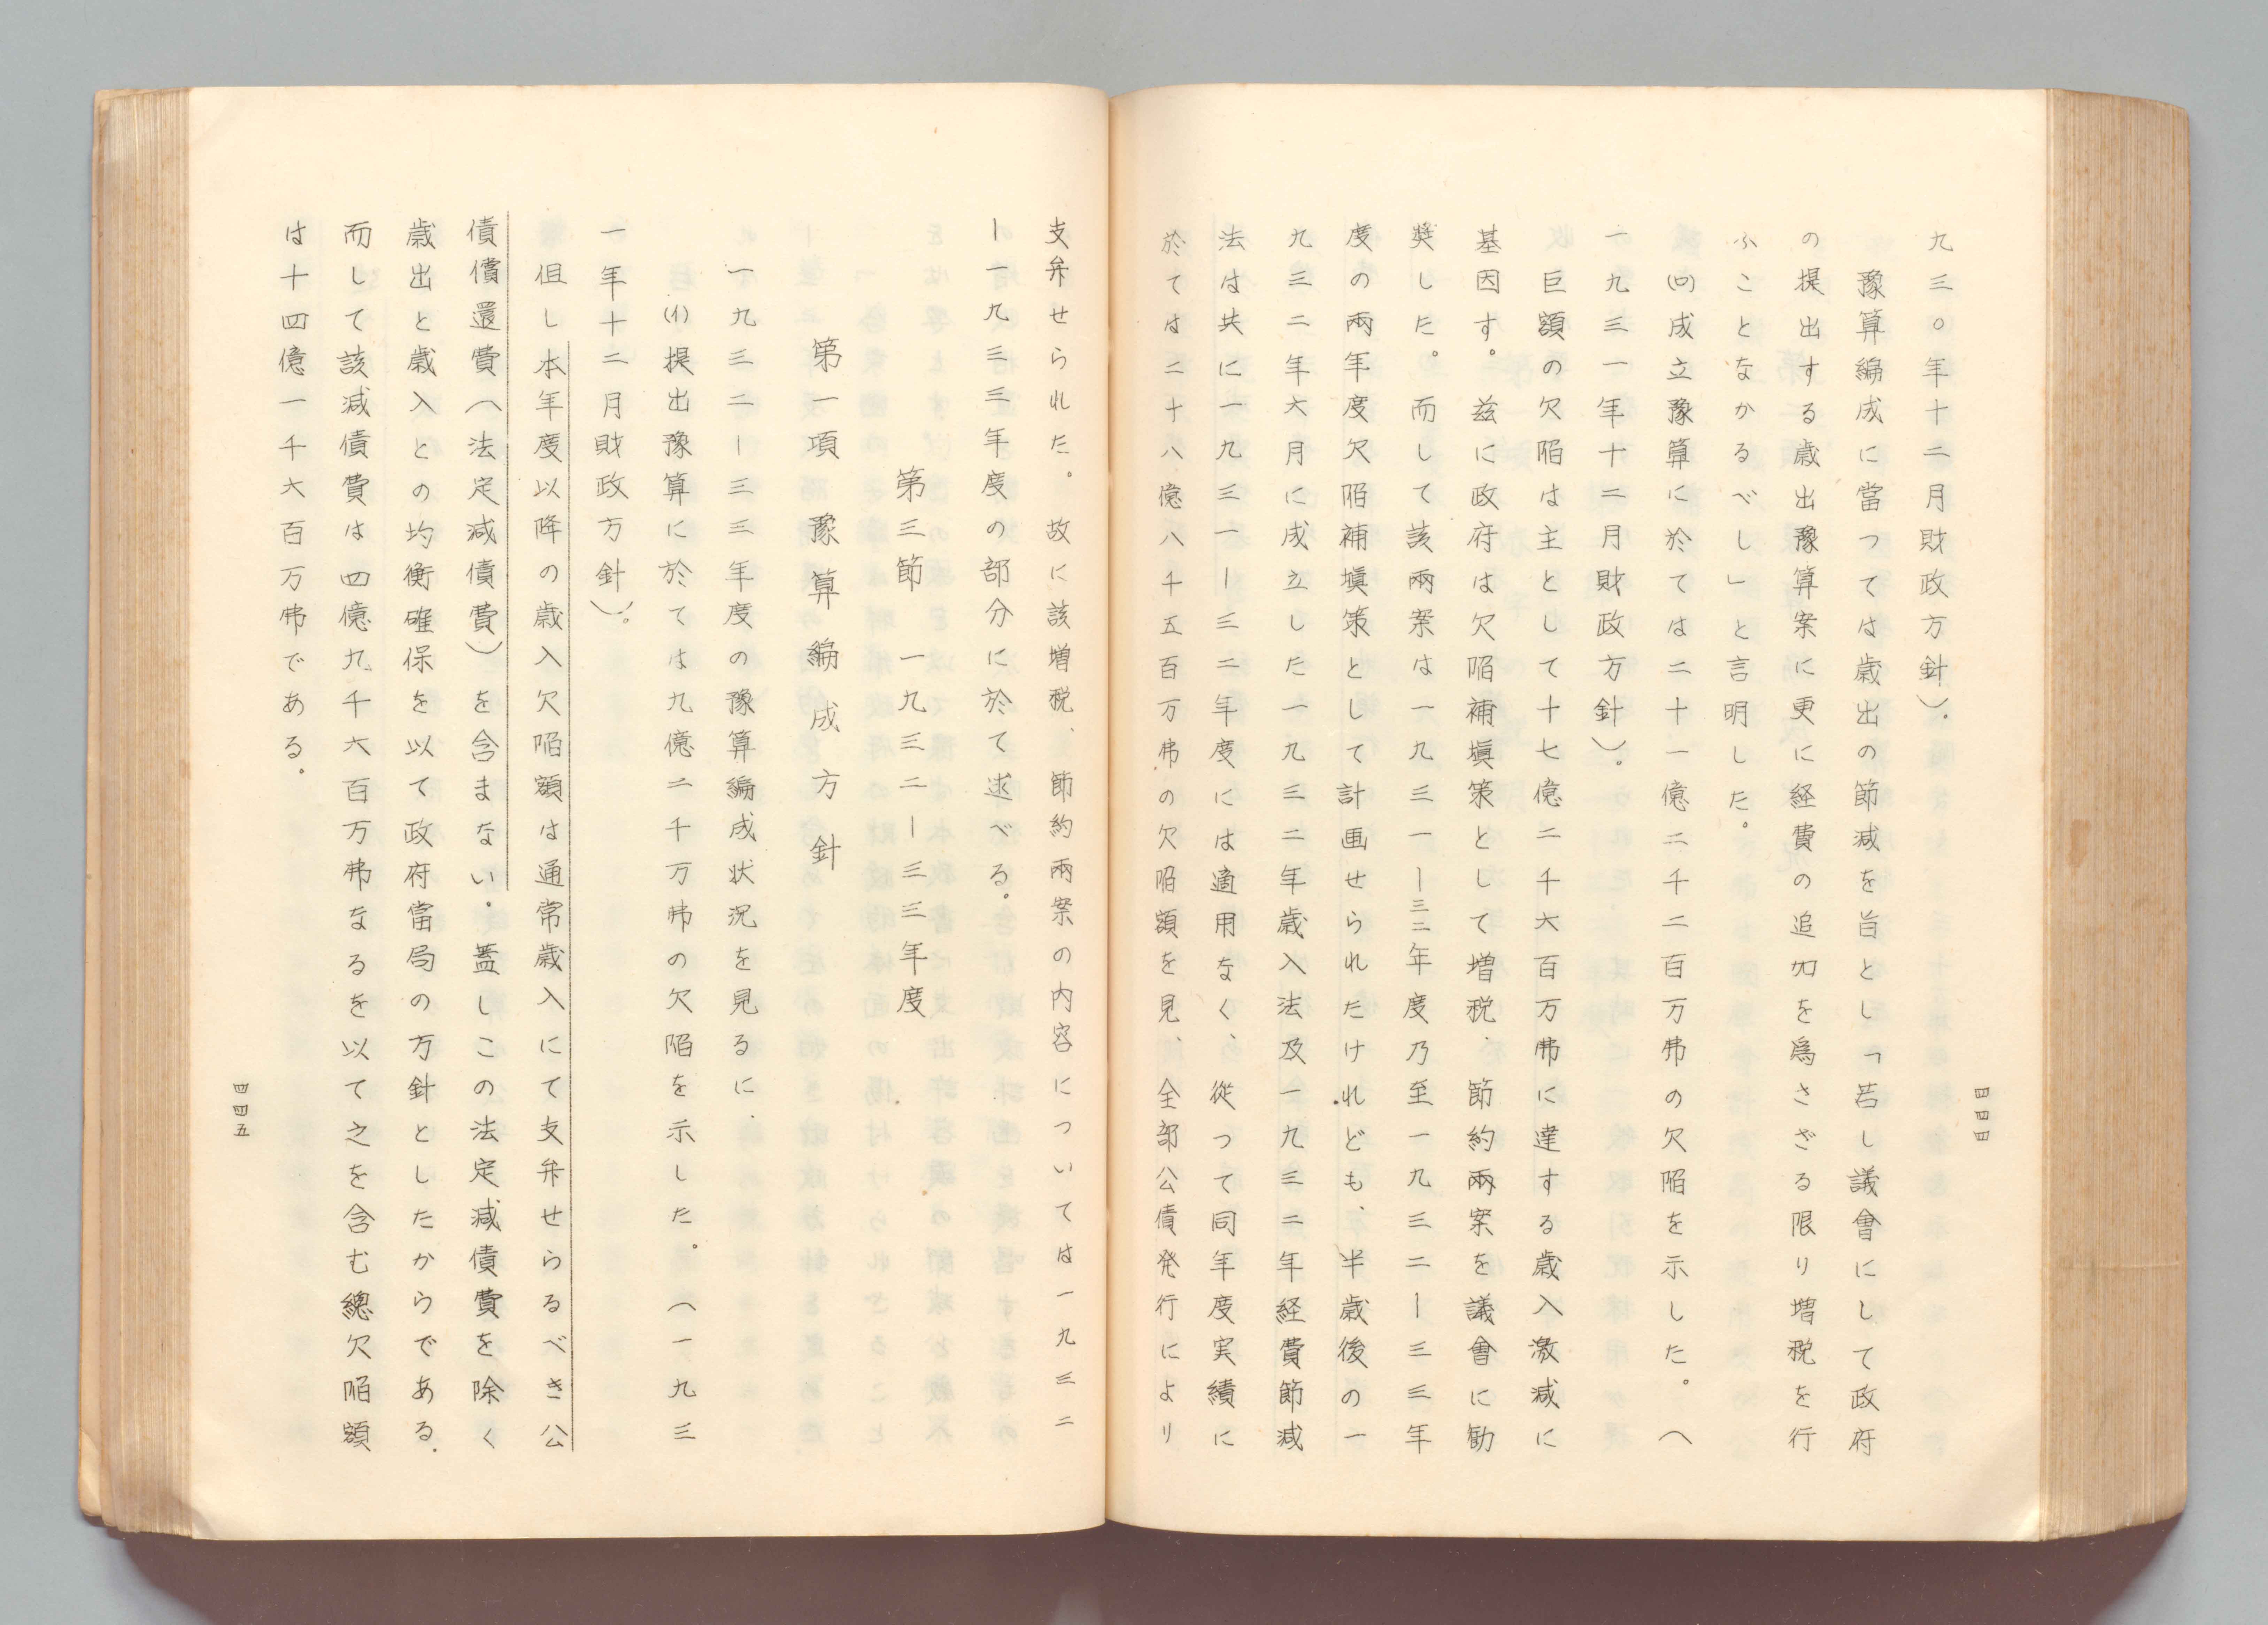 九三〇年十二月財政方針)。
豫算編成に當つては歳出の節減を旨とし「若し議會にして政府
の提出する歳出豫算案に更に経費の追加を爲さざる限り増税を行
ふことなかるべし」と言明した。
(ロ)成立豫算に於ては二十一億二千二百万弗の欠陥を示した。(
一九三一年十二月財政方針)。
巨額の欠陥は主として十七億二千六百万弗に達する歳入激減に
基因す。茲に政府は欠陥補塡策として増税、節約兩案を議會に勧
奬した。而して該兩案は一九三一ー三二年度乃至一九三二ー三三年
度の兩年度欠陥補塡策として計画せられたけれども、半歳後の一
九三二年六月に成立した一九三二年歳入法及一九三二年経費節減
法は共に一九三一ー三二年度には適用なく、従つて同年度実績に
於ては二十八億八千五百万弗の欠陥額を見、全部公債発行により
四四四
支弁せられた。故に該増税、節約兩案の内容については一九三二
ー一九三三年度の部分に於て述べる。
第三節 一九三二ー三三年度
第一項 豫算編成方針
一九三二ー三三年度の豫算編成状況を見るに、
(イ)提出豫算に於ては九億二千万弗の欠陥を示した。(一九三
一年十二月財政方針)。
但し本年度以降の歳入欠陥額は通常歳入にて支弁せらるべき公
債償還費(法定減債費)を含まない。蓋しこの法定減債費を除く
歳出と歳入との均衡確保を以て政府當局の方針としたからである。
而して該減債費は四億九千六百万弗なるを以て之を含む總欠陥額
は十四億一千六百万弗である。
四四五